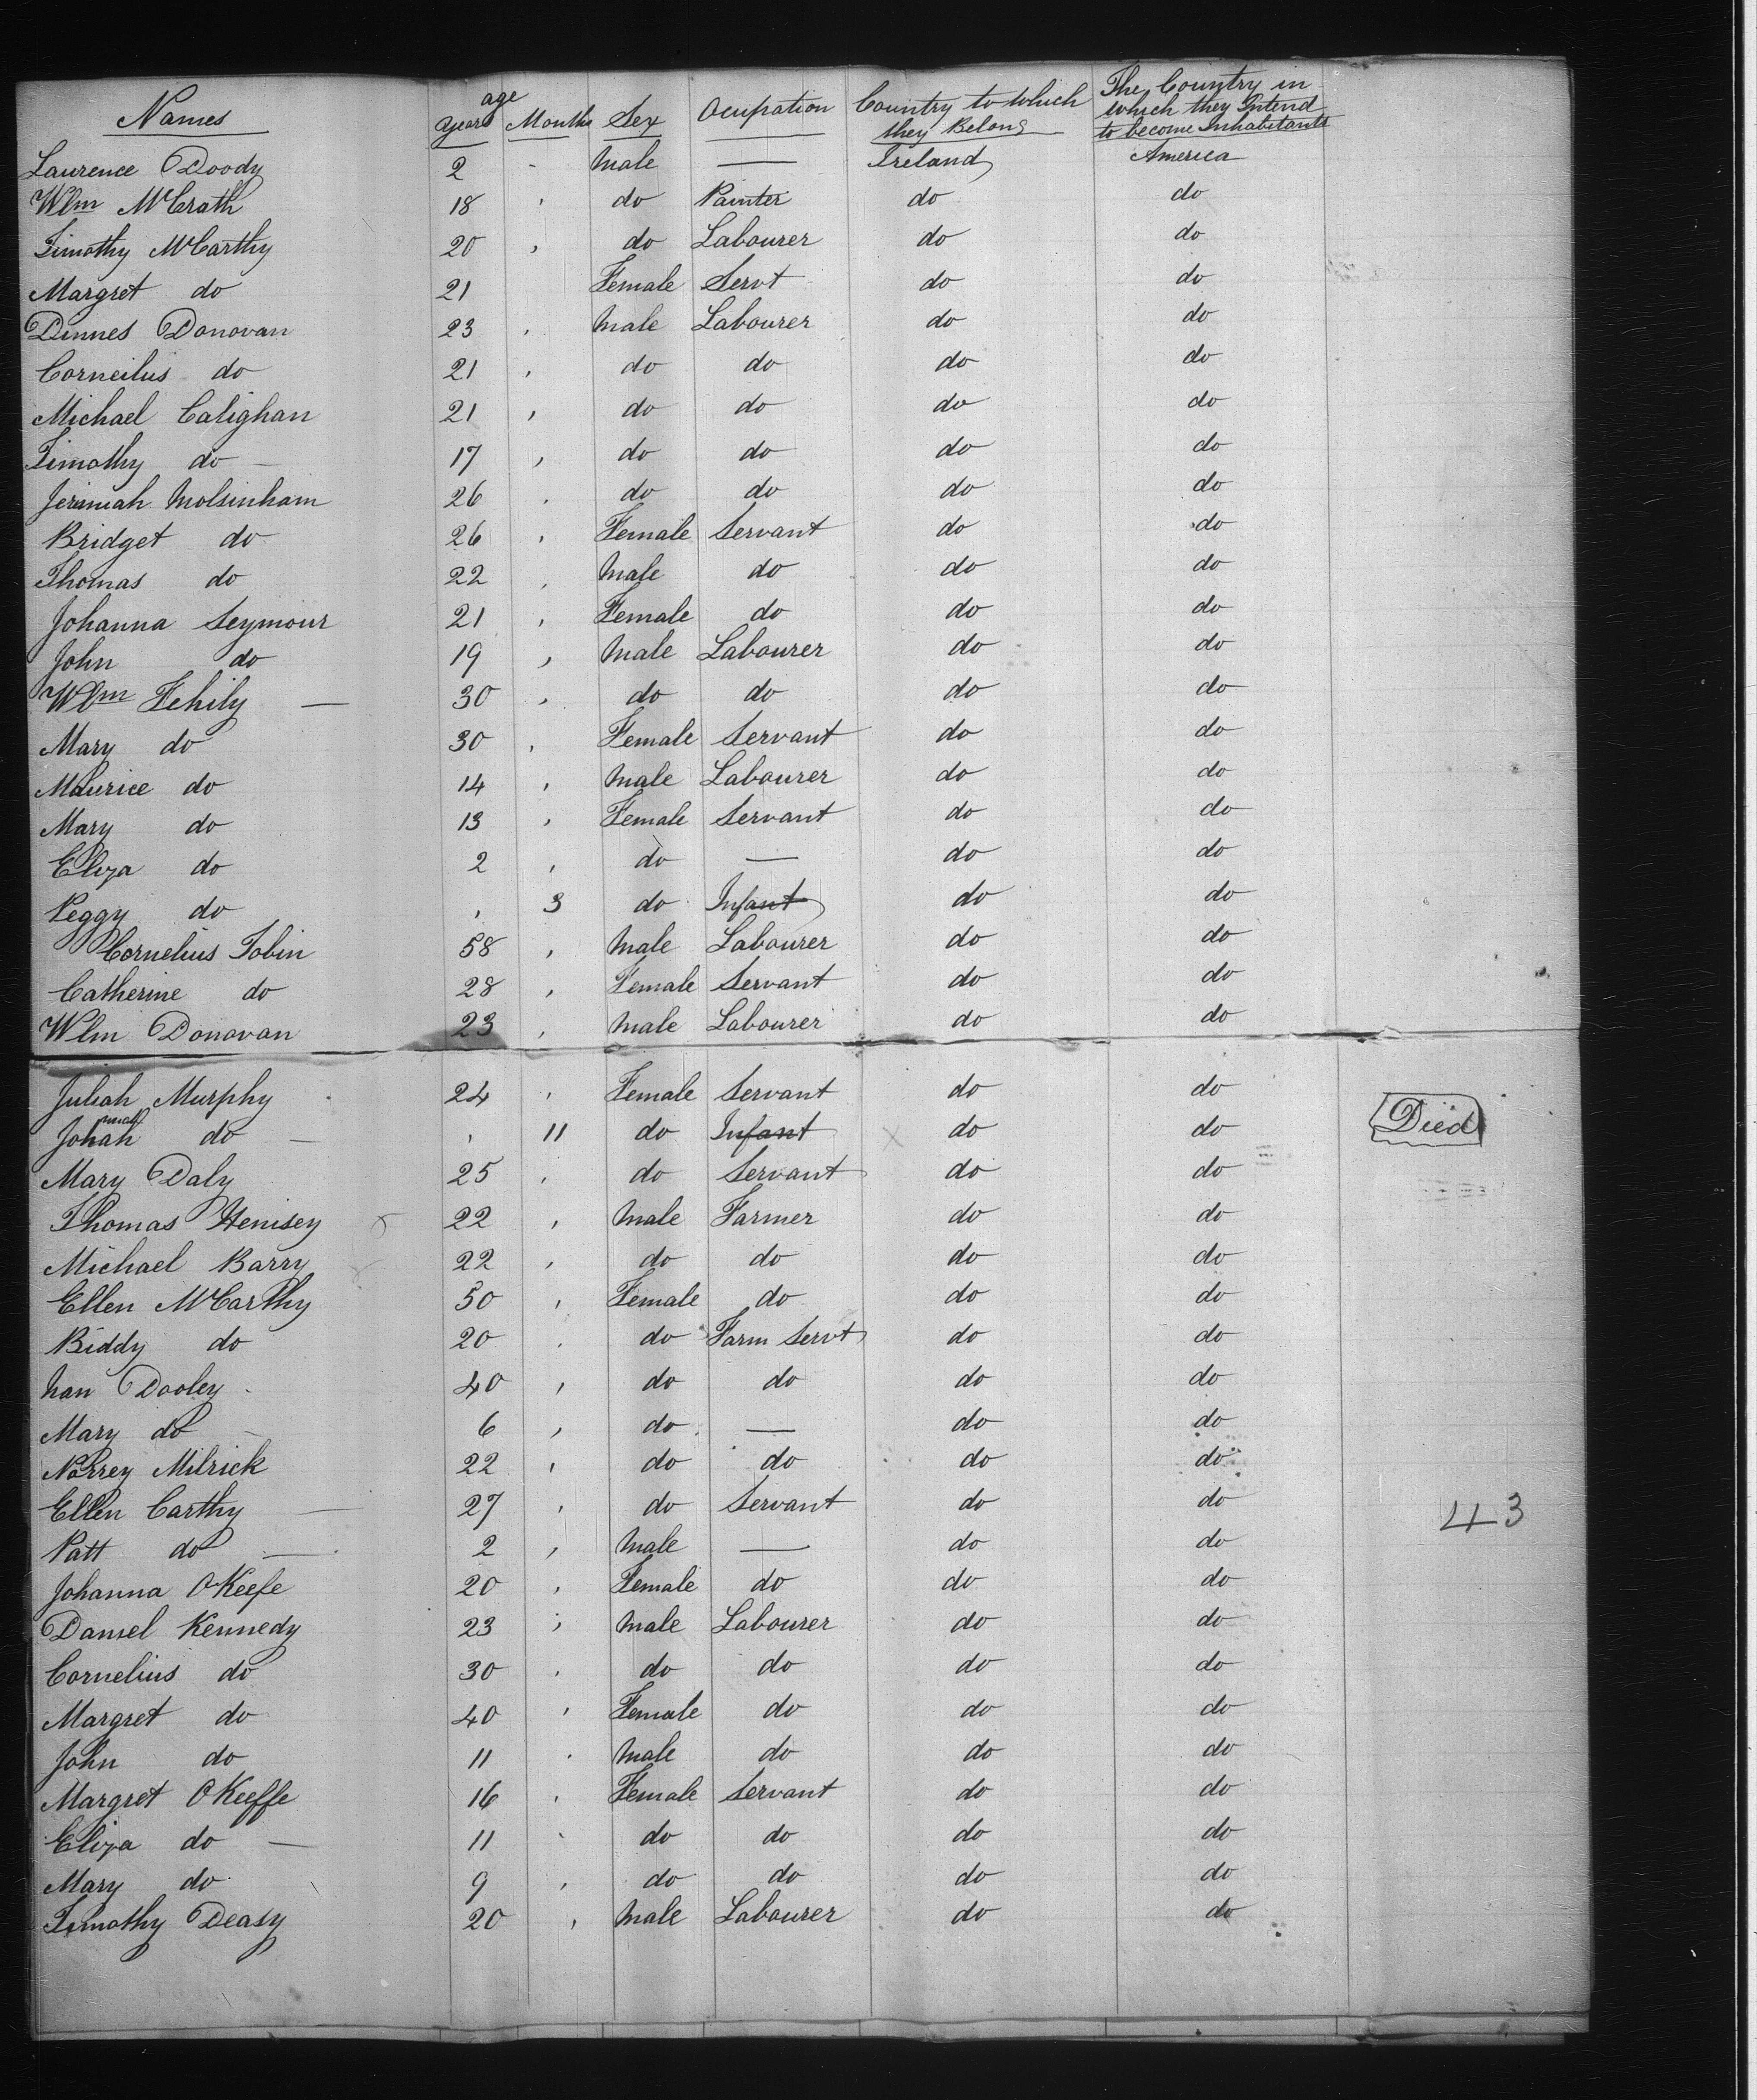 Names age years Months Sex Ocupation Country to which they Belong The Country in which they Intend to become Inhabitants
Laurence Doody 2 - Male — Ireland America
Wlm McCrath 18 , do Painter do do
Timothy McCarthy 20 , do Labourer do do
Margret do 21 Female Servt do do
Dinnes Donovan 23 , Male Labourer do do
Corneilus do 21 , do do do do
Michael Calighan 21 , do do do do
Timothy do — 17 , do do do do
Jerimiah Molsinham 26 , do do do do
Bridget do 26 , Female Servant do do
Thomas do 22 , Male do do do
Johanna Seymour 21 , Female do do do
John do 19 , Male Labourer do do
Wlm Fehily — 30 , do do do do
Mary do 30 , Female Servant do do
Maurice do 14 , Male Labourer do do
Mary do 13 , Female Servant do do
Eliza do 2 , do — do do
Peggy do , 3 do Infant do do
Cornelius Tobin 58 , Male Labourer do do
Catherine do 28 , Female Servant do do
Wlm Donovan 23 , Male Labourer do do
Juliah Murphy 24 , Female Servant do do
do — , 11 do Infant do do Died
Mary Daly 25 , do Servant do do
Thomas Henisey x 22 , Male Farmer do do
Michael Barry 22 , do do do do
Ellen McCarthy 50 , Female do do do
Biddy do 20 , do Farm Servt do do
Nan Dooley 40 , do do do do
Mary do 6 , do — do do
Norrey Milrick 22 , do do do do
Ellen Carthy — 27 , do Servant do do 43
Patt do — 2 , Male — do do
Johanna OKeefe 20 , Female do do do
Daniel Kennedy 23 , Male Labourer do do
Cornelius do 30 , do do do do
Margret do 40 , Female do do do
John do 11 , Male do do do
Margret OKeeffe 16 , Female Servant do do
Eliza do — 11 , do do do do
Mary do 9 , do do do do
Timothy Deasy 20 , Male Labourer do do